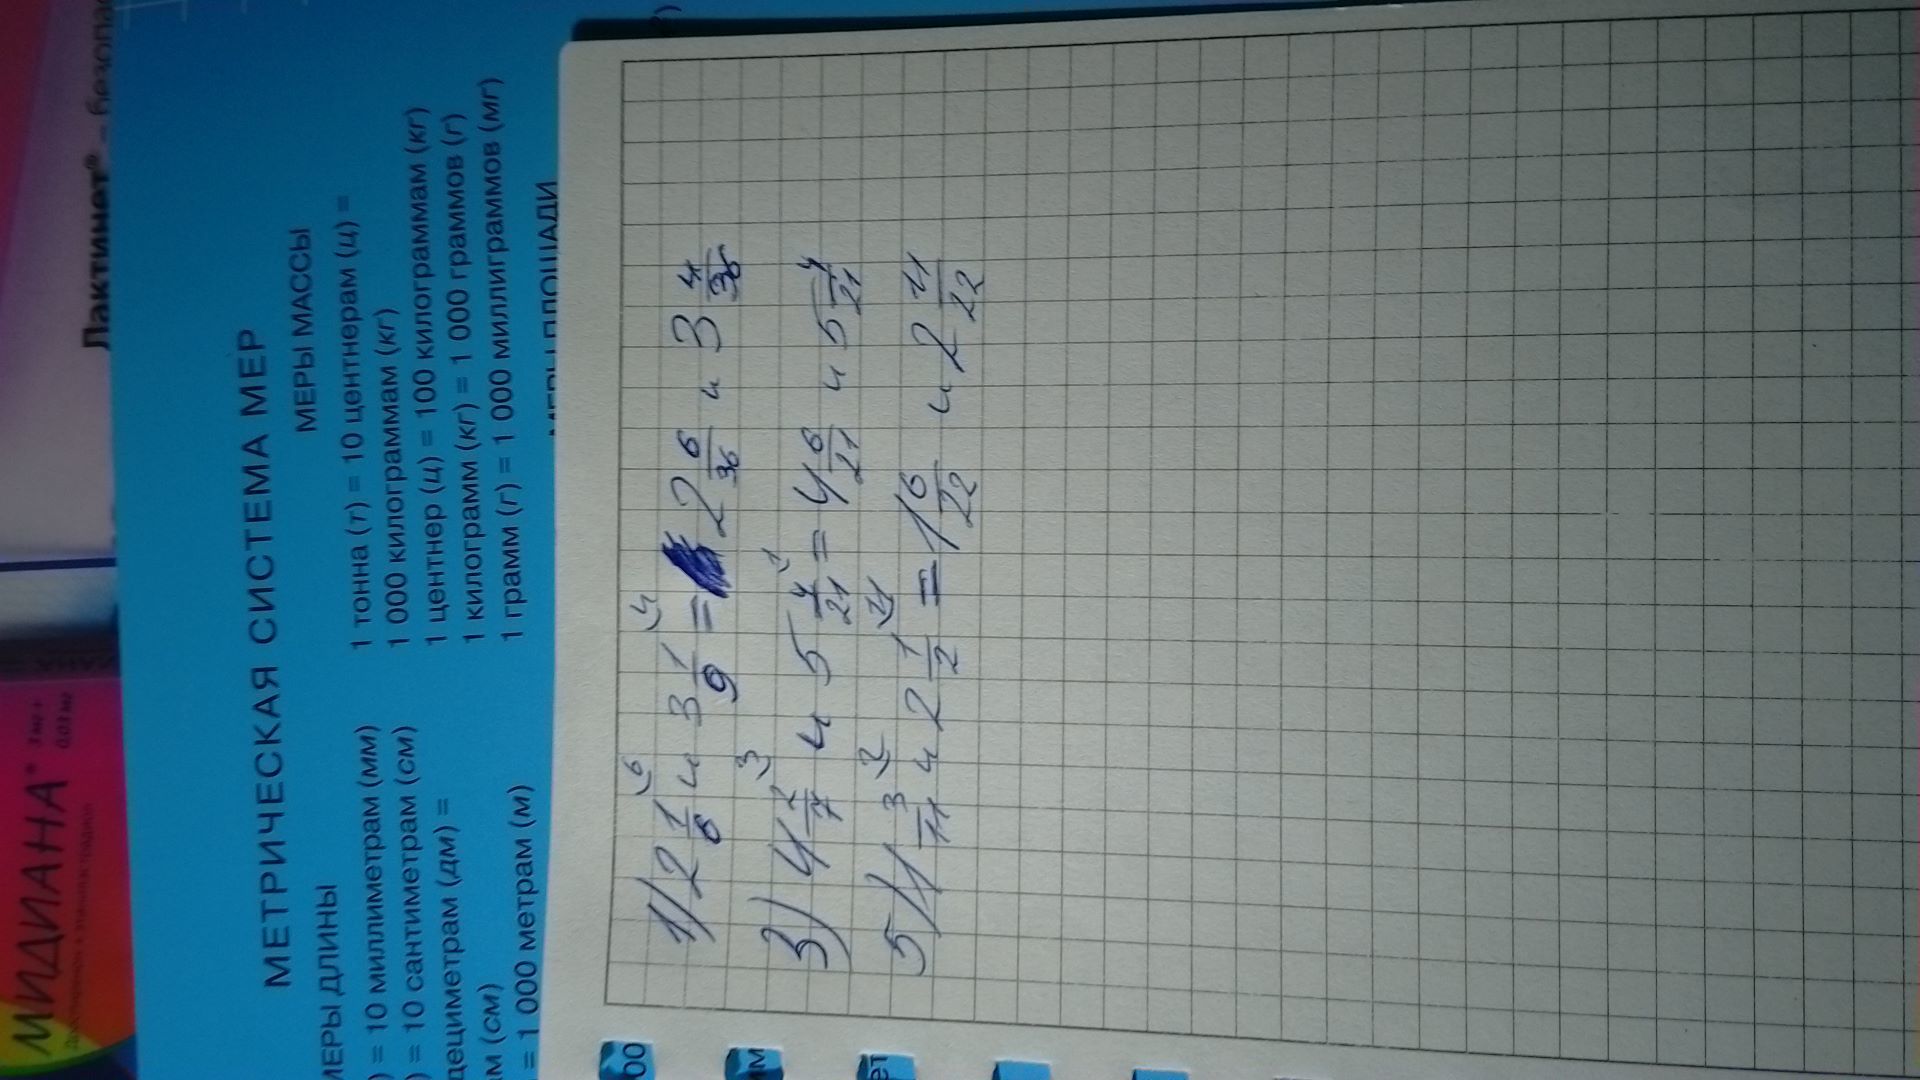 Лактинет® – безопас
МИДИАНА®
3 мг +
0.03 мг
МЕТРИЧЕСКАЯ СИСТЕМА МЕР
МЕРЫ ДЛИНЫ
) = 10 миллиметрам (мм)
) = 10 сантиметрам (см)
дециметрам (дм) =
м (см)
= 1 000 метрам (м)
МЕРЫ МАССЫ
1 тонна (т) = 10 центнерам (ц) =
1 000 килограммам (кг)
1 центнер (ц) = 100 килограммам (кг)
1 килограмм (кг) = 1 000 граммов (г)
1 грамм (г) = 1 000 миллиграммов (мг)
МЕРЫ ПЛОЩАДИ
1) 2 1/6 \6 и 3 1/9 \4 = 2 6/36 и 3 4/36
3) 4 2/7 \3 и 5 4/21 \1 = 4 6/21 и 5 4/21
5) 1 3/11 \2 и 2 1/2 \11 = 1 6/22 и 2 11/22
00
ет